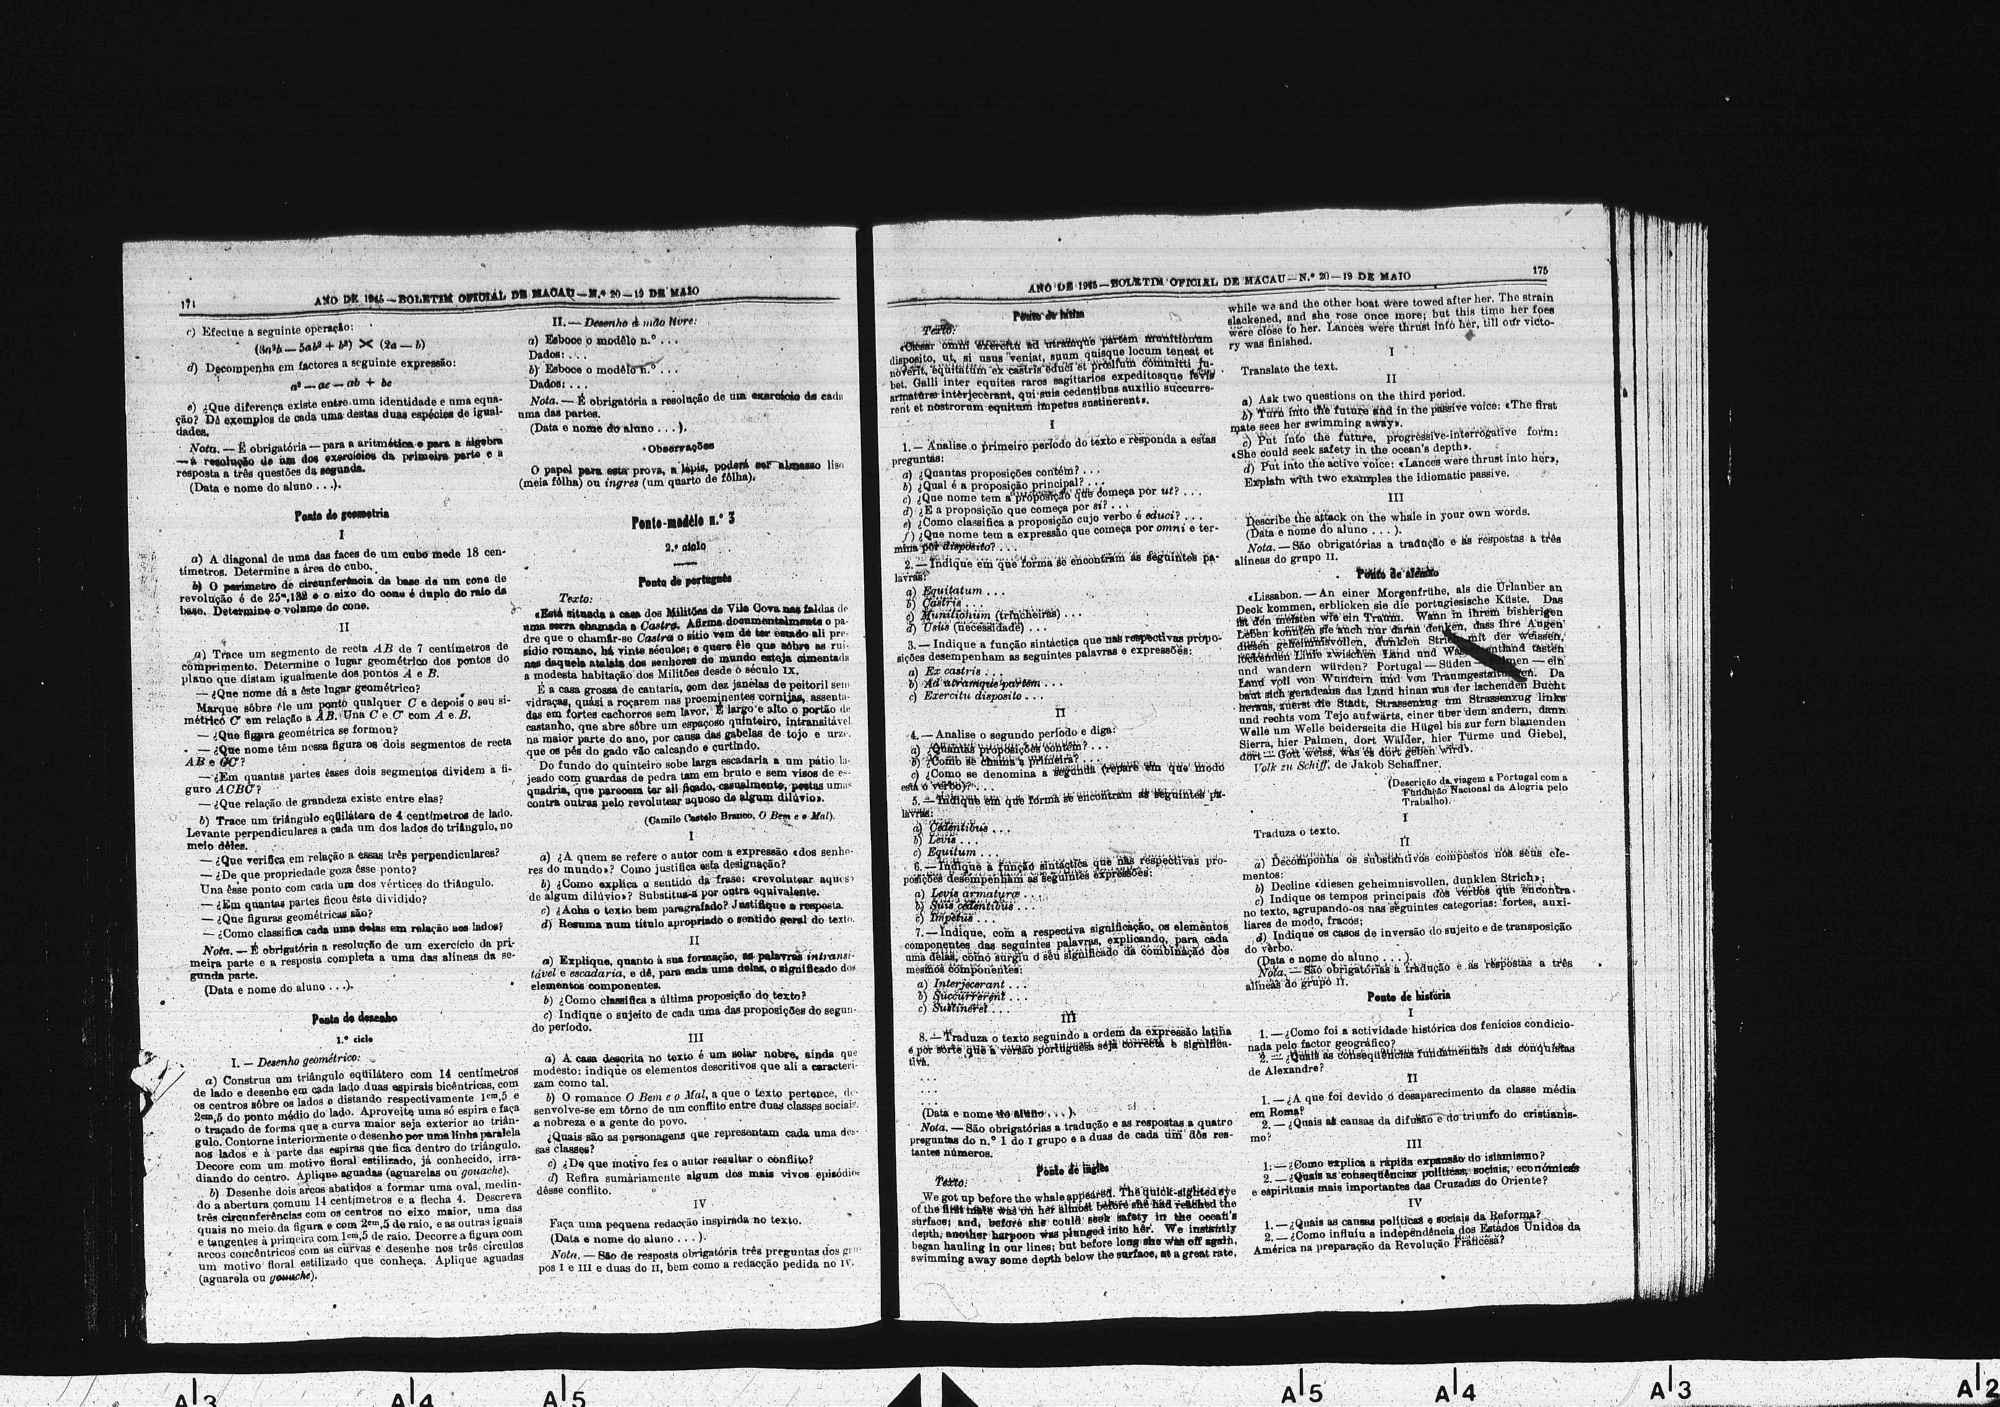 171
ANO DE 1945 — BOLETIM OFICIAL DE MACAU — N.º 20 — 19 DE MAIO
c) Efectue a seguinte operação:
(3a²b — 5ab² + b³) × (2a — b)
d) Decompenha em factores a seguinte expressão:
a² — ac — ab + bc
e) ¿Que diferença existe entre uma identidade e uma equa-
ção? Dê exemplos de cada uma destas duas espécies de igual-
dades.
Nota. — É obrigatória — para a aritmética e para a álgebra
— a resolução de um dos exercícios da primeira parte e a
resposta a três questões da segunda.
(Data e nome do aluno . . .).
Ponto de geometria
I
a) A diagonal de uma das faces de um cubo mede 18 cen-
tímetros. Determine a área do cubo.
b) O perímetro de circunferência da base de um cone de
revolução é de 25ᵐ,132 e o eixo do cone é duplo do raio da
base. Determine o volume do cone.
II
a) Trace um segmento de recta AB de 7 centímetros de
comprimento. Determine o lugar geométrico dos pontos do
plano que distam igualmente dos pontos A e B.
— ¿Que nome dá a êste lugar geométrico?
Marque sôbre êle um ponto qualquer C e depois o seu si-
métrico C' em relação a AB. Una C e C' com A e B.
— ¿Que figura geométrica se formou?
— ¿Que nome têm nessa figura os dois segmentos de recta
AB e CC'?
— ¿Em quantas partes êsses dois segmentos dividem a fi-
gura ACBC'?
— ¿Que relação de grandeza existe entre elas?
b) Trace um triângulo eqüilátero de 4 centímetros de lado.
Levante perpendiculares a cada um dos lados do triângulo, no
meio dêles.
— ¿Que verifica em relação a essas três perpendiculares?
— ¿De que propriedade goza êsse ponto?
Una êsse ponto com cada um dos vértices do triângulo.
— ¿Em quantas partes ficou êste dividido?
— ¿Que figuras geométricas são?
— ¿Como classifica cada uma delas em relação aos lados?
Nota. — É obrigatória a resolução de um exercício da pri-
meira parte e a resposta completa a uma das alíneas da se-
gunda parte.
(Data e nome do aluno . . .).
Ponto de desenho
1.º ciclo
I. — Desenho geométrico:
a) Construa um triângulo eqüilátero com 14 centímetros
de lado e desenhe em cada lado duas espirais bicêntricas, com
os centros sôbre os lados e distando respectivamente 1ᶜᵐ,5 e
2ᶜᵐ,5 do ponto médio do lado. Aproveite uma só espira e faça
o traçado de forma que a curva maior seja exterior ao triân-
gulo. Contorne interiormente o desenho por uma linha paralela
aos lados e à parte das espiras que fica dentro do triângulo.
Decore com um motivo floral estilizado, já conhecido, irra-
diando do centro. Aplique aguadas (aguarelas ou gouache).
b) Desenhe dois arcos abatidos a formar uma oval, medin-
do a abertura comum 14 centímetros e a flecha 4. Descreva
três circunferências com os centros no eixo maior, uma das
quais no meio da figura e com 2ᶜᵐ,5 de raio, e as outras iguais
e tangentes à primeira com 1ᶜᵐ,5 de raio. Decorre a figura com
arcos concêntricos com as curvas e desenhe nos três círculos
um motivo floral estilizado que conheça. Aplique aguadas
(aguarela ou gouache).
II. — Desenho à mão livre:
a) Esboce o modêlo n.º . . .
Dados: . . .
b) Esboce o modêlo n.º . . .
Dados: . . .
Nota. — É obrigatória a resolução de um exercício de cada
uma das partes.
(Data e nome do aluno . . .).
Observações
O papel para esta prova, a lápis, poderá ser almasso liso
(meia fôlha) ou ingres (um quarto de fôlha).
Ponto-modêlo n.º 3
2.º ciclo
Ponto de português
Texto:
«Está situada a casa dos Militões de Vila Cova nas faldas de
uma serra chamada a Castra. Afirma documentalmente o pa-
dre que o chamar-se Castra o sítio vem de ter estado ali pre-
sídio romano, há vinte séculos; e quere êle que sôbre as ruí-
nas daquela atalaia dos senhores do mundo esteja cimentada
a modesta habitação dos Militões desde o século IX.
É a casa grossa de cantaria, com dez janelas de peitoril sem
vidraças, quási a roçarem nas proeminentes cornijas, assenta-
das em fortes cachorros sem lavor. É largo e alto o portão de
castanho, que abre sôbre um espaçoso quinteiro, intransitável
na maior parte do ano, por causa das gabelas de tojo e urze,
que os pés do gado vão calcando e curtindo.
Do fundo do quinteiro sobe larga escadaria a um pátio la-
jeado com guardas de pedra tam em bruto e sem visos de es-
quadria, que parecem ter ali ficado, casualmente, postas umas
contra outras pelo revolutear aquoso de algum dilúvio».
(Camilo Castelo Branco, O Bem e o Mal).
I
a) ¿A quem se refere o autor com a expressão «dos senho-
res do mundo»? Como justifica esta designação?
b) ¿Como explica o sentido da frase: «revolutear aquoso
de algum dilúvio»? Substitua-a por outra equivalente.
c) ¿Acha o texto bem paragrafado? Justifique a resposta.
d) Resuma num título apropriado o sentido geral do texto.
II
a) Explique, quanto à sua formação, as palavras intransi-
tável e escadaria, e dê, para cada uma delas, o significado dos
elementos componentes.
b) ¿Como classifica a última proposição do texto?
c) Indique o sujeito de cada uma das proposições do segun-
do período.
III
a) A casa descrita no texto é um solar nobre, ainda que
modesto: indique os elementos descritivos que ali a caracteri-
zam como tal.
b) O romance O Bem e o Mal, a que o texto pertence, de-
senvolve-se em tôrno de um conflito entre duas classes sociais,
a nobreza e a gente do povo.
¿Quais são as personagens que representam cada uma des-
sas classes?
c) ¿De que motivo fez o autor resultar o conflito?
d) Refira sumàriamente algum dos mais vivos episódios
dêsse conflito.
IV
Faça uma pequena redacção inspirada no texto.
(Data e nome do aluno . . . ).
Nota. — São de resposta obrigatória três preguntas dos gru-
pos I e III e duas do II, bem como a redacção pedida no IV.
ANO DE 1945 — BOLETIM OFICIAL DE MACAU — N.º 20 — 19 DE MAIO
175
Ponto de latim
Texto:
«Cæsar omni exercitu ad utramque partem munitionum
disposito, ut, si usus veniat, suum quisque locum teneat et
noverit, equitatum ex castris educi et prœlium committi ju-
bet. Galli inter equites raros sagittarios expeditosque levis
armaturæ interjecerant, qui suis cedentibus auxilio succurre-
rent et nostrorum equitum impetus sustinerent».
I
1. — Analise o primeiro período do texto e responda a estas
preguntas:
a) ¿Quantas proposições contém? . . .
b) ¿Qual é a proposição principal? . . .
c) ¿Que nome tem a proposição que começa por ut? . . .
d) ¿E a proposição que começa por si? . . .
e) ¿Como classifica a proposição cujo verbo é educi? . . .
f) ¿Que nome tem a expressão que começa por omni e ter-
mina por disposito? . . .
2. — Indique em que forma se encontram as seguintes pa-
lavras:
a) Equitatum . . .
b) Castris . . .
c) Munitionum (trincheiras) . . .
d) Usus (necessidade) . . .
3. — Indique a função sintáctica que nas respectivas propo-
sições desempenham as seguintes palavras e expressões:
a) Ex castris . . .
b) Ad utramque partem . . .
c) Exercitu disposito . . .
II
4. — Analise o segundo período e diga:
a) ¿Quantas proposições contém? . . .
b) ¿Como se chama a primeira? . . .
c) ¿Como se denomina a segunda (repare em que modo
está o verbo)? . . .
5. — Indique em que forma se encontram as seguintes pa-
lavras:
a) Cedentibus . . .
b) Levis . . .
c) Equitum . . .
6. — Indique a função sintáctica que nas respectivas pro-
posições desempenham as seguintes expressões:
a) Levis armaturæ . . .
b) Suis cedentibus . . .
c) Impetus . . .
7. — Indique, com a respectiva significação, os elementos
componentes das seguintes palavras, explicando, para cada
uma delas, como surgiu o seu significado da combinação dos
mesmos componentes:
a) Interjecerant . . .
b) Succurrerent . . .
c) Sustineret . . .
III
8. — Traduza o texto seguindo a ordem da expressão latina
e por sorte que a versão portuguesa seja correcta e significa-
tiva.
. . .
. . .
(Data e nome do aluno . . . ).
Nota. — São obrigatórias a tradução e as respostas a quatro
preguntas do n.º 1 do I grupo e a duas de cada um dos res-
tantes números.
Ponto de inglês
Texto:
We got up before the whale appeared. The quick-sighted eye
of the first mate was on her almost before she had reached the
surface; and, before she could seek safety in the ocean's
depth, another harpoon was plunged into her. We instantly
began hauling in our lines; but before long she was off again,
swimming away some depth below the surface, at a great rate,
while we and the other boat were towed after her. The strain
slackened, and she rose once more; but this time her foes
were close to her. Lances were thrust into her, till our victo-
ry was finished.
I
Translate the text.
II
a) Ask two questions on the third period.
b) Turn into the future and in the passive voice: «The first
mate sees her swimming away».
c) Put into the future, progressive-interrogative form:
«She could seek safety in the ocean's depth».
d) Put into the active voice: «Lances were thrust into her»,
Explain with two examples the idiomatic passive.
III
Describe the attack on the whale in your own words.
(Data e nome do aluno . . . ).
Nota. — São obrigatórias a tradução e as respostas a três
alíneas do grupo II.
Ponto de alemão
«Lissabon. — An einer Morgenfrühe, als die Urlauber an
Deck kommen, erblicken sie die portugiesische Küste. Das
ist den meisten wie ein Traum. Wann in ihrem bisherigen
Leben konnten sie auch nur daran denken, dass ihre Augen
diesen geheimnisvollen, dunklen Strich mit der weissen,
lockenden Linie zwischen Land und tasten
und wandern würden? Portugal — Süden — — ein
Land voll von Wundern und von Da
baut sich geradeaus das Land hinan aus der lachenden Bucht
heraus, zuerst die Stadt, Strassenzug um Strassenzug links
und rechts vom Tejo aufwärts, einer über dem andern, dann
Welle um Welle beiderseits die Hügel bis zur fern blauenden
Sierra, hier Palmen, dort Wälder, hier Türme und Giebel,
dort — Gott weiss, was es dort geben wird».
Volk zu Schiff, de Jakob Schaffner.
(Descrição da viagem a Portugal com a
Fundação Nacional da Alegria pelo
Trabalho).
I
Traduza o texto.
II
a) Decomponha os substantivos compostos nos seus ele-
mentos:
b) Decline «diesen geheimnisvollen, dunklen Strich»;
c) Indique os tempos principais dos verbos que encontra
no texto, agrupando-os nas seguintes categorias: fortes, auxi-
liares de modo, fracos;
d) Indique os casos de inversão do sujeito e de transposição
do verbo.
(Data e nome do aluno . . . ).
Nota. — São obrigatórias a tradução e as respostas a três
alíneas do grupo II.
Ponto de história
I
1. — ¿Como foi a actividade histórica dos fenícios condicio-
nada pelo factor geográfico?
2. — ¿Quais as conseqüências fundamentais das conquistas
de Alexandre?
II
1. — ¿A que foi devido o desaparecimento da classe média
em Roma?
2. — ¿Quais as causas da difusão e do triunfo do cristianis-
mo?
III
1. — ¿Como explica a rápida expansão do islamismo?
2. — ¿Quais as conseqüências políticas, sociais, económicas
e espirituais mais importantes das Cruzadas do Oriente?
IV
1. — ¿Quais as causas políticas e sociais da Reforma?
2. — ¿Como influíu a independência dos Estados Unidos da
América na preparação da Revolução Francesa?
A 3 A 4 A 5 A 5 A 4 A 3 A 2